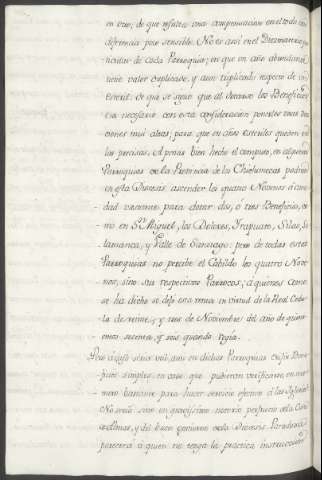 en otro; de que resulta una compensacion en el todo con
diferencia poco sensible. No es asi en el Diezmatorio par-
ticular de cada Parroquia; en que un año abundante
tiene valor duplicado, y aun triplicado respecto de un
esteril: de que se sigue que al dotarse los Beneficios
era necesario con esta consideracion ponerles unas dota-
ciones mui altas; para que en años esteriles queden en
las precisas. Apenas bien hecho el computo, en algunas
Parroquias de la Provincia de los Chichimecas podrian
en esta Diocesis ascender los quatro Novenos à canti-
dad vacante para dotar dos, ò tres Beneficios, co-
mo en Sn. Miguel, los Dolores, Irapuato, Silao, Sa-
lamanca, y Valle de Santiago; pero de todas estas
Parroquias no percibe el Cabildo los quatro Nove-
nos, sino sus respectivos Parrocos; à quienes como
se ha dicho se dejó esta renta en virtud de la Real Cedu-
la de veinte, y tres de Noviembre del año de quini-
entos setenta, y seis quando regía.
Por acaso seria util aun en dichas Parroquias erigir Bene-
ficios simples en caso que pudieran verificarse, en nu-
mero bastante para hacer servicio efectivo à las Iglesias?
No seria sino en gravissimo notorio perjuicio de la Cura
de Almas, y del buen govierno de la Diocesis. Paradoxa
parecerá à quien no tenga la practica instruccion